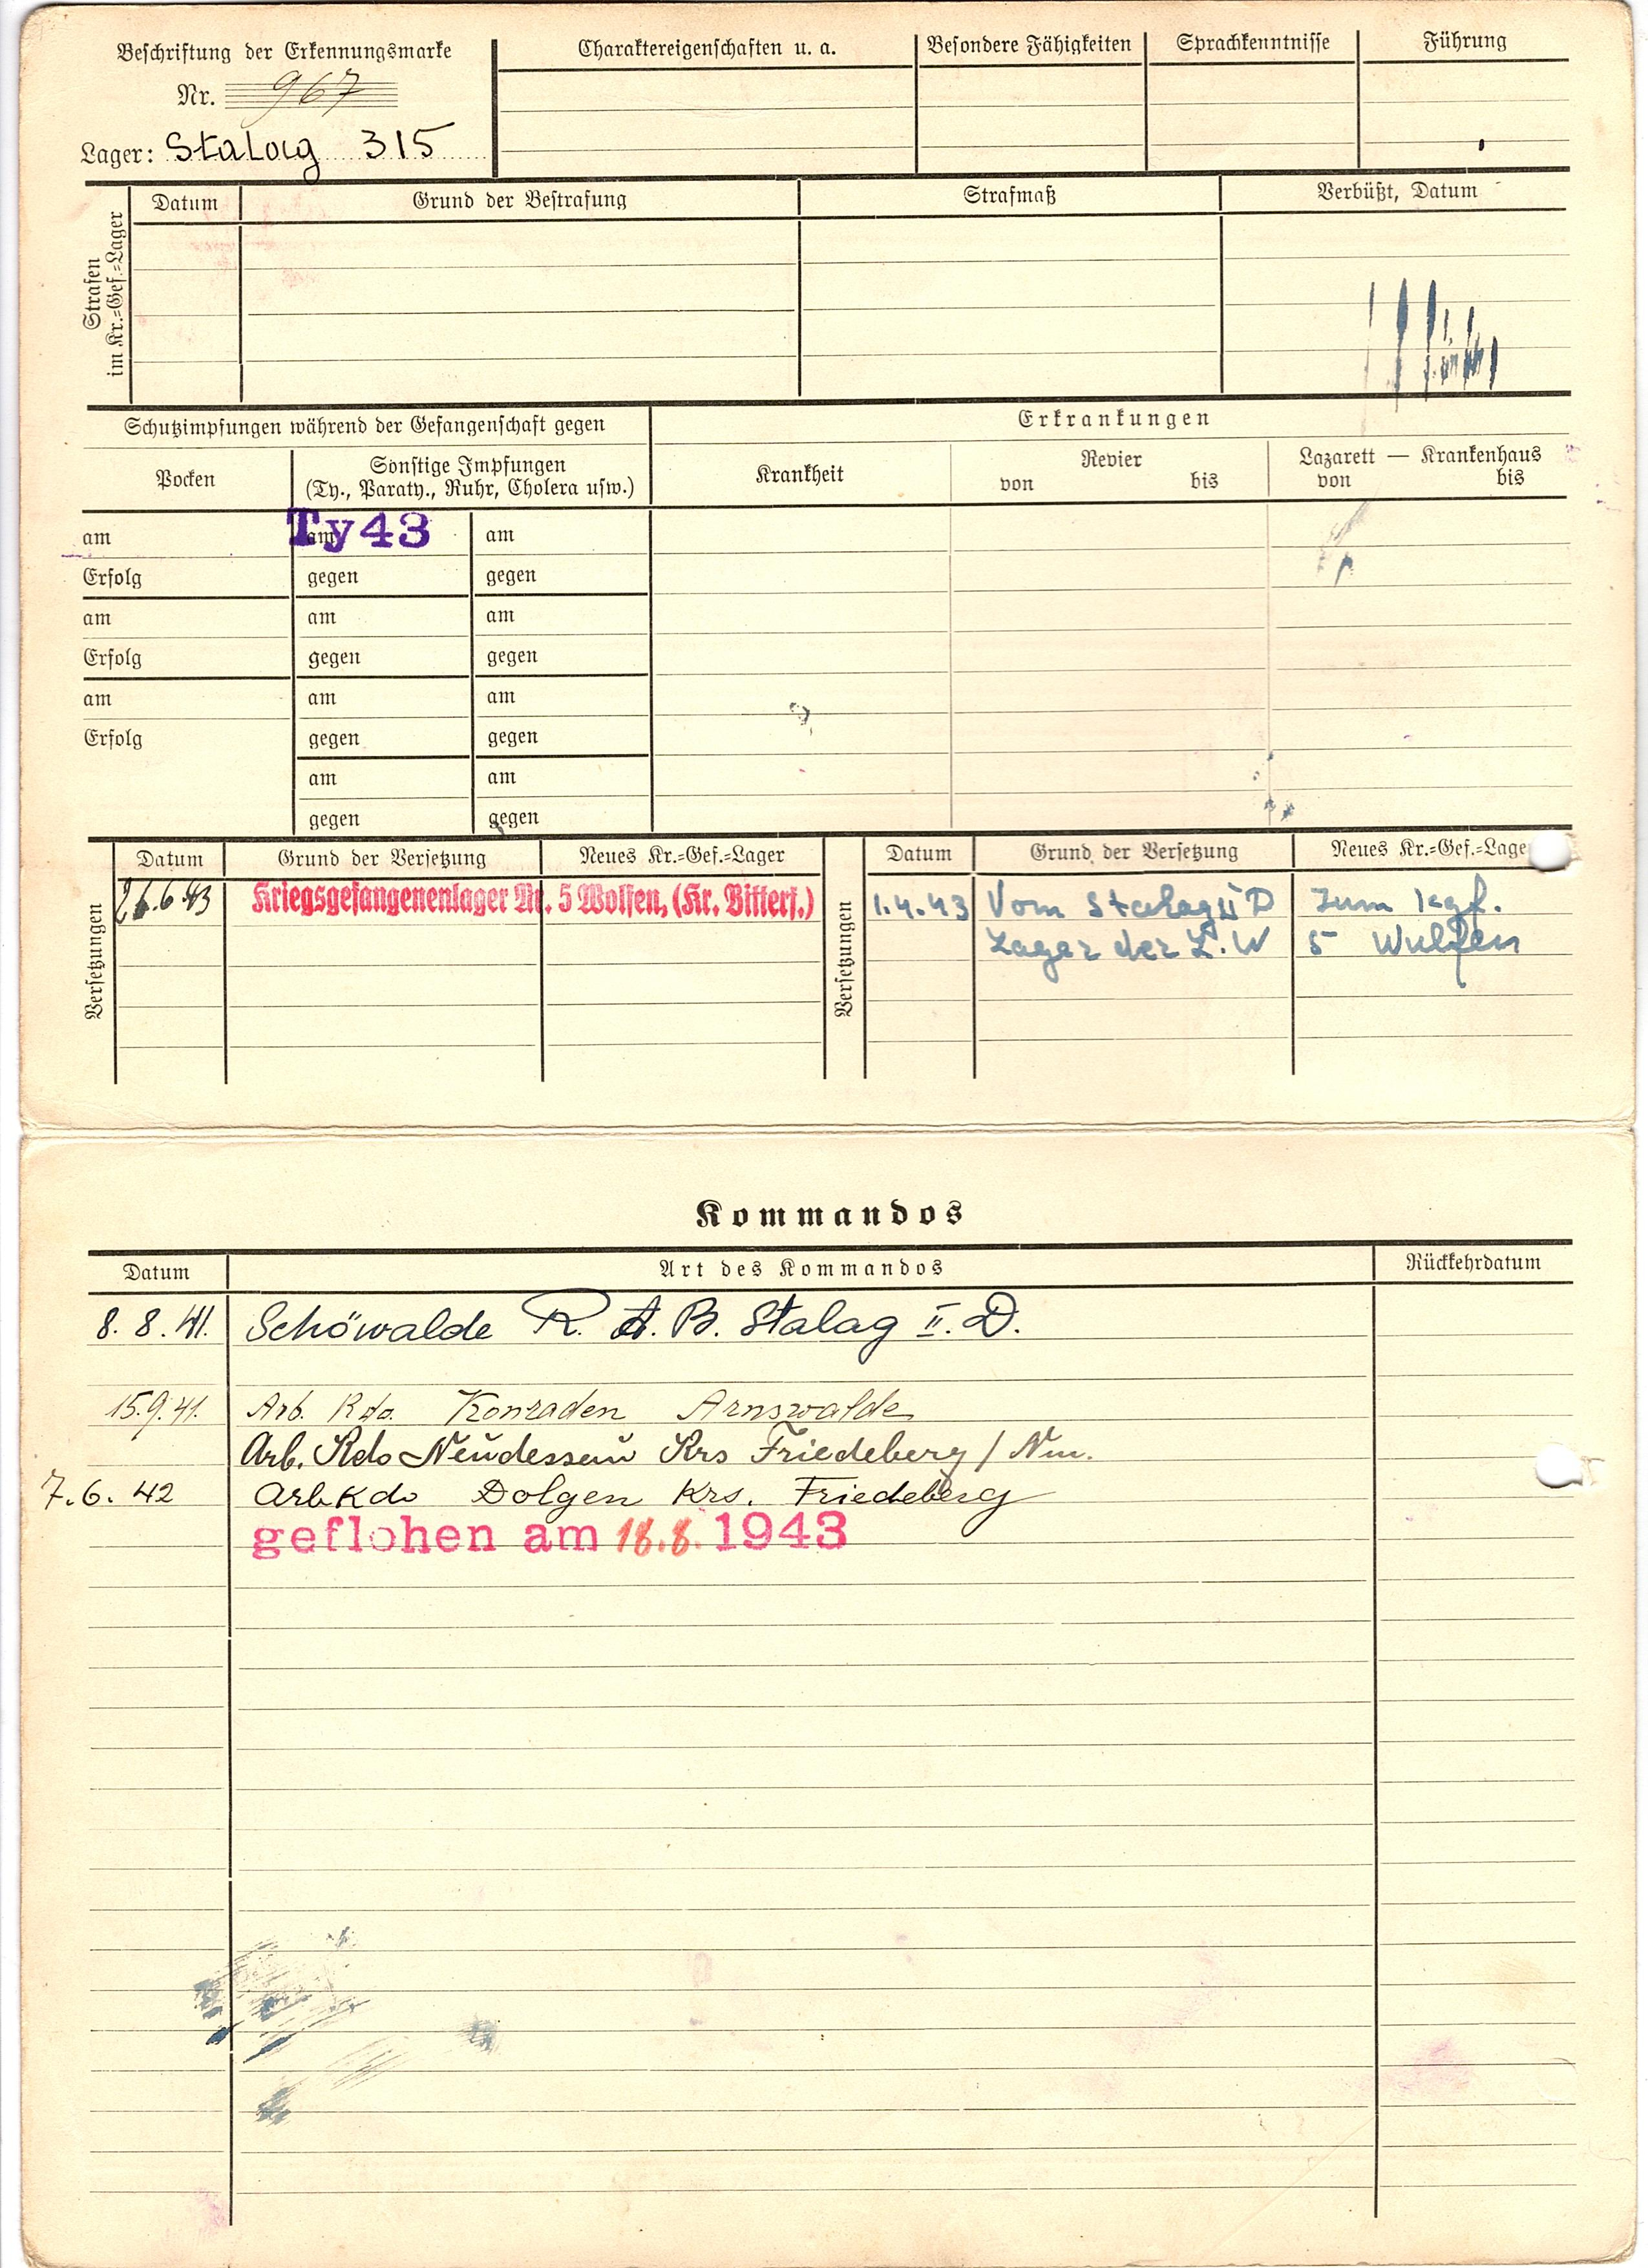 Beschriftung der Erkennungsmarke
Nr. 967
Lager: Stalag 315
Charaktereigenschaften u. a.
Besondere Fähigkeiten
Sprachkenntnisse
Führung
Strafen
im Kr.=Gef.=Lager
Datum
Grund der Bestrafung
Strafmaß
Verbüßt, Datum
Schutzimpfungen während der Gefangenschaft gegen
Erkrankungen
Pocken
Sonstige Impfungen
(Ty., Paraty., Ruhr, Cholera usw.)
Krankheit
Revier
von bis
Lazarett — Krankenhaus
von bis
am am Ty43 am
Erfolg gegen gegen
am am am
Erfolg gegen gegen
am am am
Erfolg gegen gegen
am am
gegen gegen
Versetzungen
Datum Grund der Versetzung Neues Kr.=Gef.=Lager
26.6.43 Kriegsgefangenenlager Nr. 5 Wolfen, (Kr. Bitterf.)
Versetzungen
Datum Grund der Versetzung Neues Kr.=Gef.=Lage
1.4.43 Vom Stalag II D Zum kgf.
Lager der L.W 5 Wulfen
Kommandos
Datum Art des Kommandos Rückkehrdatum
8. 8. 41. Schöwalde R. A. B. Stalag II. D.
15.9.41. Arb. Kdo. Konraden Arnswalde
Arb. Kdo Neudessau Krs Friedeberg / Nm.
7.6. 42 Arb.Kdo Dolgen Krs. Friedeberg
geflohen am 18.8. 1943